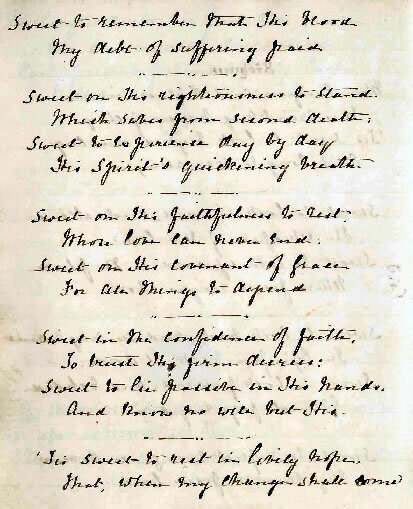 Sweet to remember that His blood
My debt of suffering paid
Sweet on His righteousness to stand
Which saves from second death;
Sweet to experience day by day
His Spirit's quickening breath
Sweet on His faithfulness to rest
Whose love can never end;
Sweet on His covenant of grace
For all things to depend
Sweet in the confidence of faith,
To trust His firm decrees;
Sweet to lie passive in His hands,
And know no will but His.
'Tis sweet to rest in lively hope
That, when my change shall come